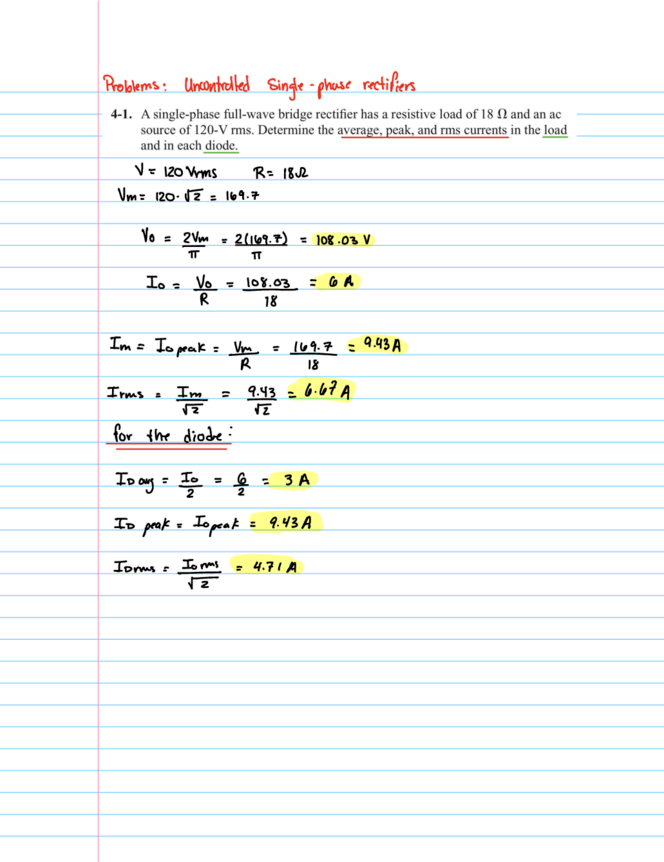 Problems: Uncontrolled Single-phase rectifiers
4-1. A single-phase full-wave bridge rectifier has a resistive load of 18 Ω and an ac
source of 120-V rms. Determine the average, peak, and rms currents in the load
and in each diode.
V = 120 Vrms R = 18Ω
Vm = 120 · √2 = 169.7
Vo = 2Vm/π = 2(169.7)/π = 108.03 V
Io = Vo/R = 108.03/18 = 6 A
Im = Io peak = Vm/R = 169.7/18 = 9.43 A
Irms = Im/√2 = 9.43/√2 = 6.67 A
for the diode:
ID avg = Io/2 = 6/2 = 3 A
ID peak = Io peak = 9.43 A
IDrms = Io rms/√2 = 4.71 A